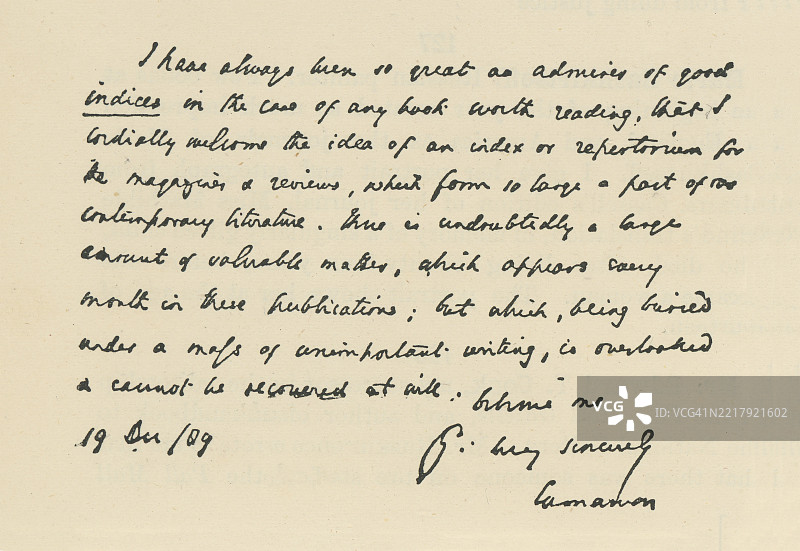 I have always been so great an admirer of good
indices in the case of any book worth reading, that I
cordially welcome the idea of an index or repertorium for
the magazines & reviews, which form so large a part of our
contemporary literature. There is undoubtedly a large
amount of valuable matter, which appears every
month in these publications; but which, being buried
under a mass of unimportant writing, is overlooked
& cannot be recovered at will. Believe me
19 Dec /89
Yrs: very sincerely
Carnarvon
VCG
ID: VCG41N2217921602